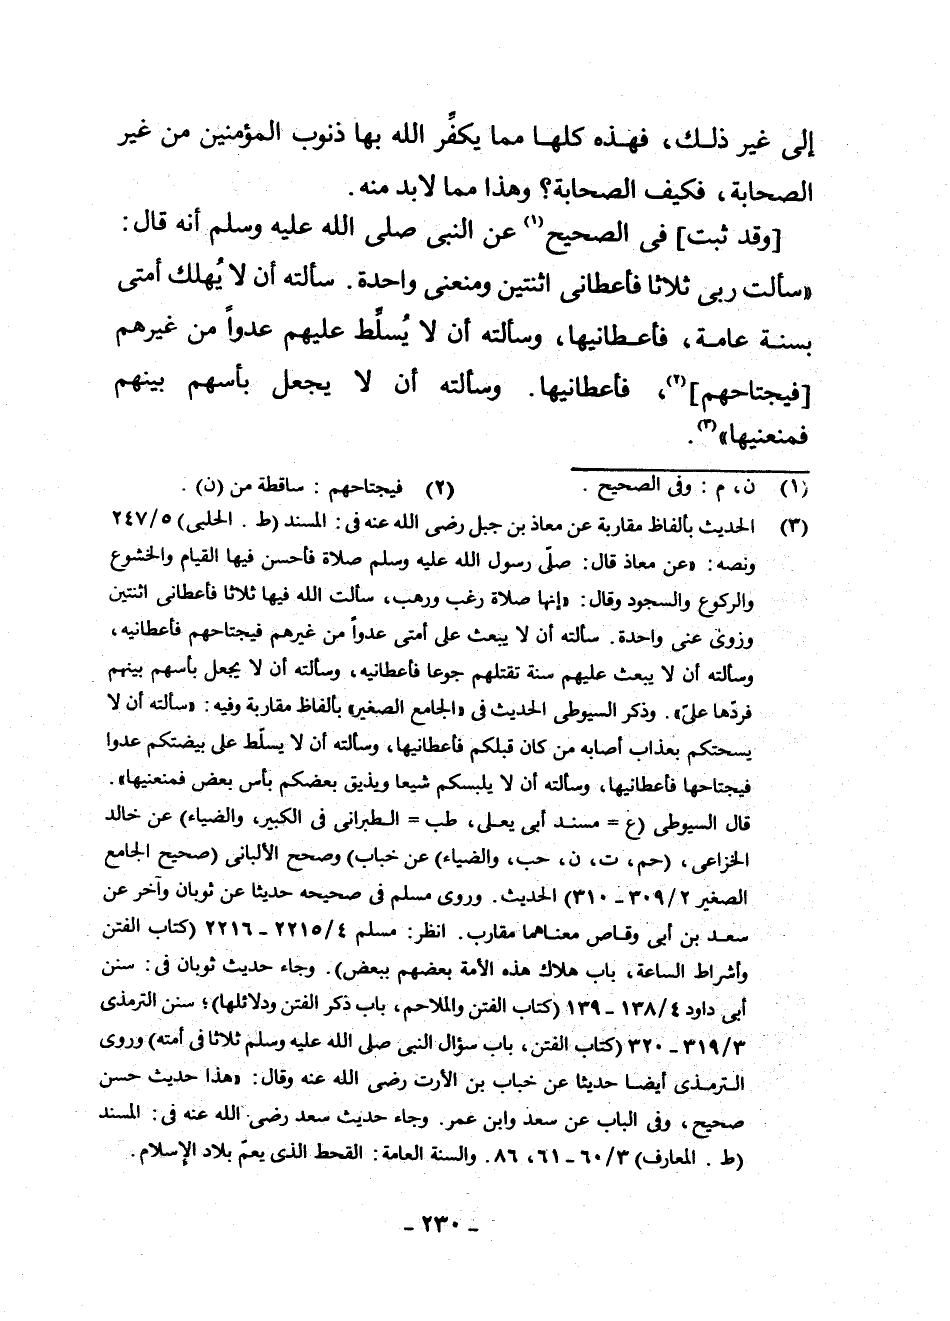 إلى غير ذلك، فهذه كلها مما يكفِّر الله بها ذنوب المؤمنين من غير
الصحابة، فكيف الصحابة؟ وهذا مما لابد منه.
[وقد ثبت] فى الصحيح(١) عن النبى صلى الله عليه وسلم أنه قال:
«سألت ربى ثلاثا فأعطانى اثنتين ومنعنى واحدة. سألته أن لا يُهلك أمتى
بسنة عامة، فأعطانيها، وسألته أن لا يُسلِّط عليهم عدواً من غيرهم
[فيجتاحهم](٢)، فأعطانيها. وسألته أن لا يجعل بأسهم بينهم
فمنعنيها»(٣).
(١) ن، م : وفى الصحيح . (٢) فيجتاحهم : ساقطة من (ن) .
(٣) الحديث بألفاظ مقاربة عن معاذ بن جبل رضى الله عنه فى: المسند (ط . الحلبى) ٢٤٧/٥
ونصه: «عن معاذ قال: صلّى رسول الله عليه وسلم صلاة فأحسن فيها القيام والخشوع
والركوع والسجود وقال: «إنها صلاة رغب ورهب، سألت الله فيها ثلاثا فأعطانى اثنتين
وزوى عنى واحدة. سألته أن لا يبعث على أمتى عدواً من غيرهم فيجتاحهم فأعطانيه،
وسألته أن لا يبعث عليهم سنة تقتلهم جوعا فأعطانيه، وسألته أن لا يجعل بأسهم بينهم
فردّها علىّ». وذكر السيوطى الحديث فى «الجامع الصغير» بألفاظ مقاربة وفيه: «سألته أن لا
يسحتكم بعذاب أصابه من كان قبلكم فأعطانيها، وسألته أن لا يسلّط على بيضتكم عدوا
فيجتاحها فأعطانيها، وسألته أن لا يلبسكم شيعا ويذيق بعضكم بأس بعض فمنعنيها».
قال السيوطى (ع = مسند أبى يعلى، طب = الطبرانى فى الكبير، والضياء) عن خالد
الخزاعى، (حم، ت، ن، حب، والضياء) عن خباب) وصحح الألبانى (صحيح الجامع
الصغير ٣٠٩/٢ ـ ٣١٠) الحديث. وروى مسلم فى صحيحه حديثا عن ثوبان وآخر عن
سعد بن أبى وقاص معناهما مقارب. انظر: مسلم ٢٢١٥/٤ ـ ٢٢١٦ (كتاب الفتن
وأشراط الساعة، باب هلاك هذه الأمة بعضهم ببعض). وجاء حديث ثوبان فى: سنن
أبى داود ١٣٨/٤ ـ ١٣٩ (كتاب الفتن والملاحم، باب ذكر الفتن ودلائلها)؛ سنن الترمذى
٣١٩/٣ ـ ٣٢٠ (كتاب الفتن، باب سؤال النبى صلى الله عليه وسلم ثلاثا فى أمته) وروى
الترمذى أيضا حديثا عن خباب بن الأرت رضى الله عنه وقال: «هذا حديث حسن
صحيح، وفى الباب عن سعد وابن عمر. وجاء حديث سعد رضى الله عنه فى: المسند
(ط . المعارف) ٦٠/٣ ـ ٦١، ٨٦. والسنة العامة: القحط الذى يعمّ بلاد الإسلام.
ـ ٢٣٠ ـ